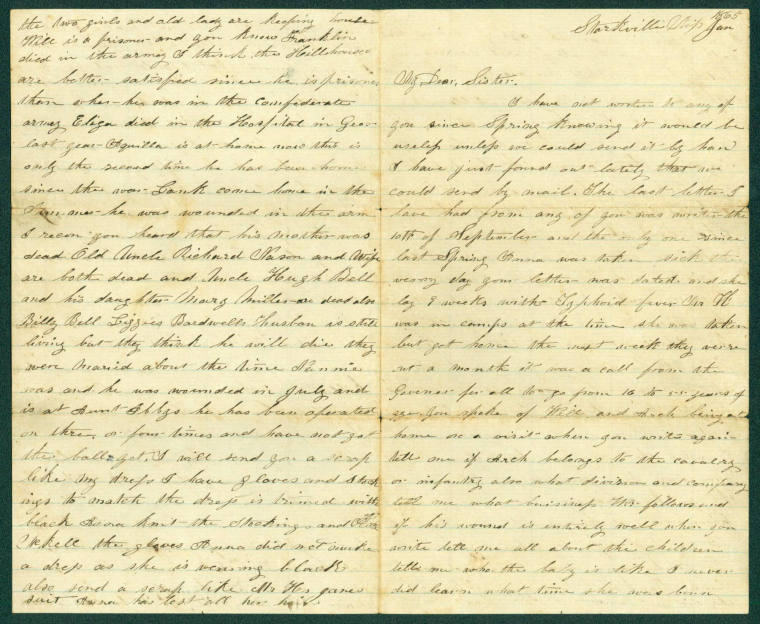 Starkville Miss Jan
1865
My Dear Sister.
I have not wrote to any of
you since Spring knowing it would be
useless unless we could send it by han
I have just found out lately that we
could send by mail. The last letter I
have had from any of you was wrote the
10th of September and the only one since
last Spring Anna was taken sick the
verry day your letter was dated and she
lay 8 weeks with Typhoid fever Mr
was in camps at the time she was taken
but got home the next week they were
out a month it was a call from the
Govener for all to go from 16 to 55 years of
age you spoke of Will and Arch being at
home on a visit when you write again
tell me if Arch belongs to the cavalry
or infantry also what division and company
tell me what buisiness Mr follows and
if his wound is entirely well when you
write tell me all about the children
tell me who the baby is like I never
did learn what time she was born
the two girls and old lady are keeping house
Will is a prisoner and you know Franklin
died in the army I think the Hillhouses
are better satisfied since he is prisoner
than when he was in the confederate
army Eliza died in the Hospital in Geo
last year Aquilla is at home now this is
only the second time he has been home
since the war Lank come home in the
Summer he was wounded in the arm
I recon you heard that his mother was
dead Old Uncle Richard Nason and Wife
are both dead and Uncle Hugh Bell
and his daughter Mary Miller are dead also
Billy Bell Lizzies Bardwells husban is still
living but they think he will die they
were maried about the time Nannie
was and he was wounded in July and
is at Aunt Ibbys he has been operated
on three or four times and have not got
the ball yet, I will send you a scrap
like my dress I have gloves and stock
ings to match the dress is trimed with
black Anna knit the Stockings and
the gloves Anna did not make
a dress as she is wearing black
also send a scrap like Mr janes
suit Anna has lost all her hair